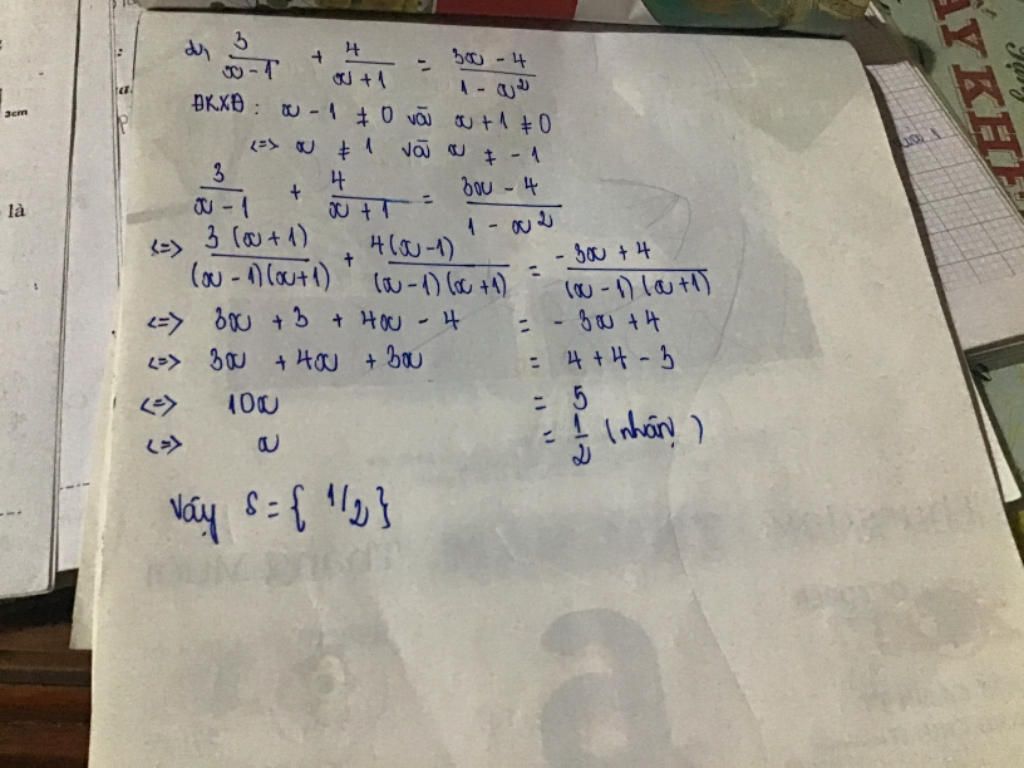 d, 3/(x-1) + 4/(x+1) = (3x-4)/(1-x²)
ĐKXĐ: x - 1 ≠ 0 và x + 1 ≠ 0
<=> x ≠ 1 và x ≠ -1
3/(x-1) + 4/(x+1) = (3x-4)/(1-x²)
<=> 3(x+1)/((x-1)(x+1)) + 4(x-1)/((x-1)(x+1)) = (-3x+4)/((x-1)(x+1))
<=> 3x + 3 + 4x - 4 = - 3x + 4
<=> 3x + 4x + 3x = 4 + 4 - 3
<=> 10x = 5
<=> x = 1/2 (nhận)
Vậy S = { 1/2 }
là
3cm